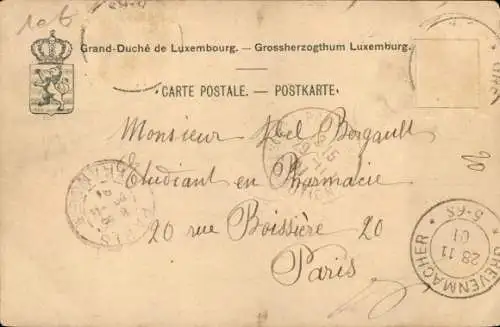 Grand-Duché de Luxembourg. — Grossherzogthum Luxemburg.
CARTE POSTALE. — POSTKARTE.
Monsieur Abel Bergault
Etudiant en Pharmacie
20 rue Boissière 20
Paris
GREVENMACHER
28 11
01
5-6S
20